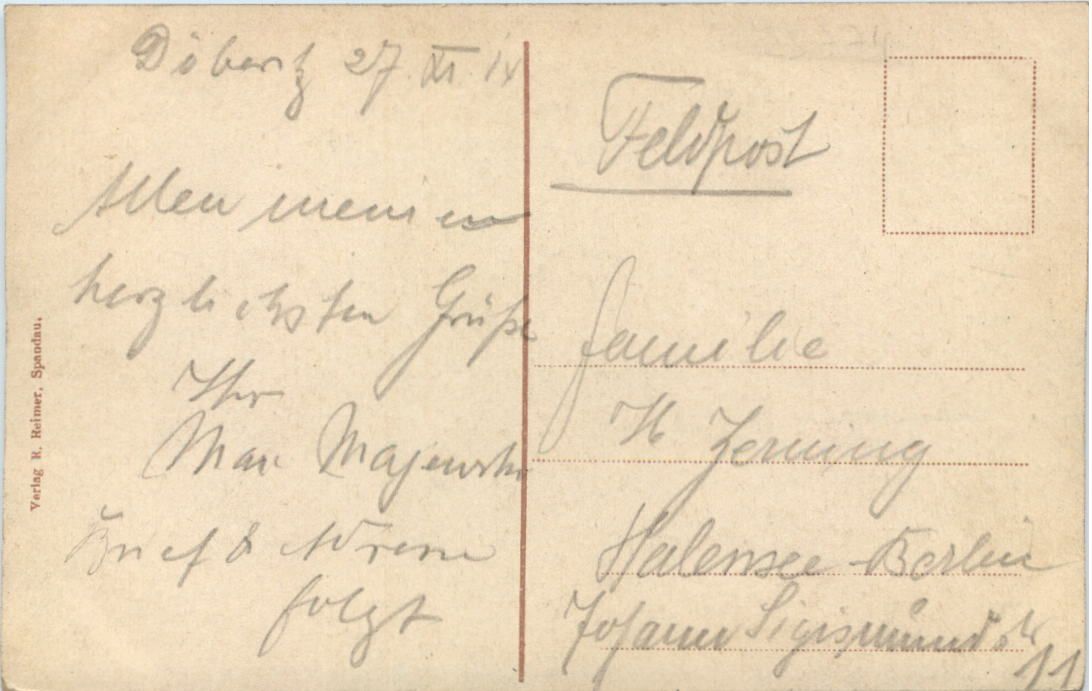 Döberitz 27. XI. 14
Allen meinen
herzlichsten Grüße
Ihr
Max Majewski
Brief & Adresse
folgt
Feldpost
Familie
H
Halensee-Berlin
Johann Sigismundstr
11
Verlag R. Reimer, Spandau.